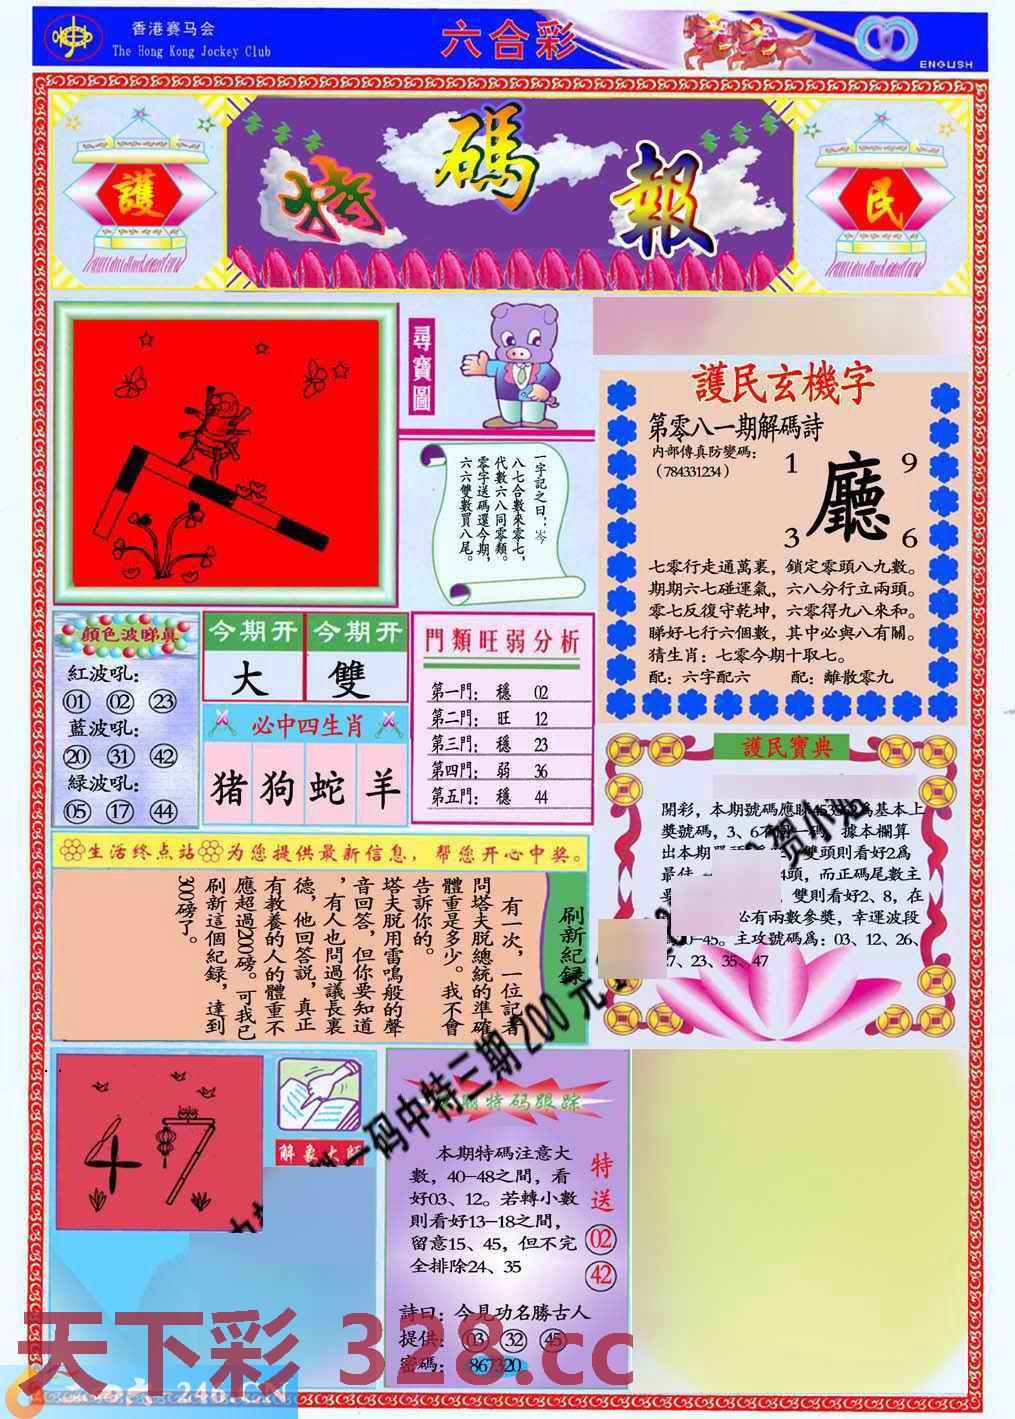 香港赛马会
The Hong Kong Jockey Club
六合彩
ENGLISH
護
特碼報
民
尋寶圖
一字記之曰：岑
八七合數來零七，
代數六八同零類。
零字送碼還今期，
六六雙數買八尾。
護民玄機字
第零八一期解碼詩
内部傳真防變碼：
（784331234）
1 9
廳
3 6
七零行走通萬裏，鎖定零頭八九數。
期期六七碰運氣，六八分行立兩頭。
零七反復守乾坤，六零得九八來和。
睇好七行六個數，其中必與八有關。
猜生肖：七零今期十取七。
配：六字配六 配：離散零九
顔色波睇真
紅波吼：
01 02 23
藍波吼：
20 31 42
緑波吼：
05 17 44
今期开 今期开
大 雙
必中四生肖
猪 狗 蛇 羊
門類旺弱分析
第一門： 穩 02
第二門： 旺 12
第三門： 穩 23
第四門： 弱 36
第五門： 穩 44
護民寶典
開彩，本期號碼應睇 爲基本上
獎號碼，3、6 據本欄算
出本期 雙頭則看好2爲
最佳 頭，而正碼尾數主
雙則看好2、8，在
必有兩數參獎，幸運波段
0-45。主攻號碼爲：03、12、26、
7、23、35、47
生活终点站 为您提供最新信息，帮您开心中奖。
刷新紀録
有一次，一位記者
問塔夫脱總統的準確
體重是多少。我不會
告訴你的。
塔夫脱用雷鳴般的聲
音回答，但你要知道
，有人也問過議長裏
德，他回答説，真正
有教養的人的體重不
應超過200磅。可我已
刷新這個紀録，達到
300磅了。
一码中特三期 200 元
47
解象大師
特码跟踪
本期特碼注意大
數，40-48之間，看
好03、12。若轉小數
則看好13-18之間，
留意15、45，但不完
全排除24、35
特送
02
42
詩曰：今見功名勝古人
提供： 03 32 45
密碼： 867320
天下彩 328.cc
246.CN